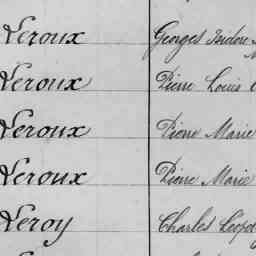 Leroux Georges Isidore
Leroux Pierre Louis
Leroux Pierre Marie
Leroux Pierre Marie
Leroy Charles Leopold